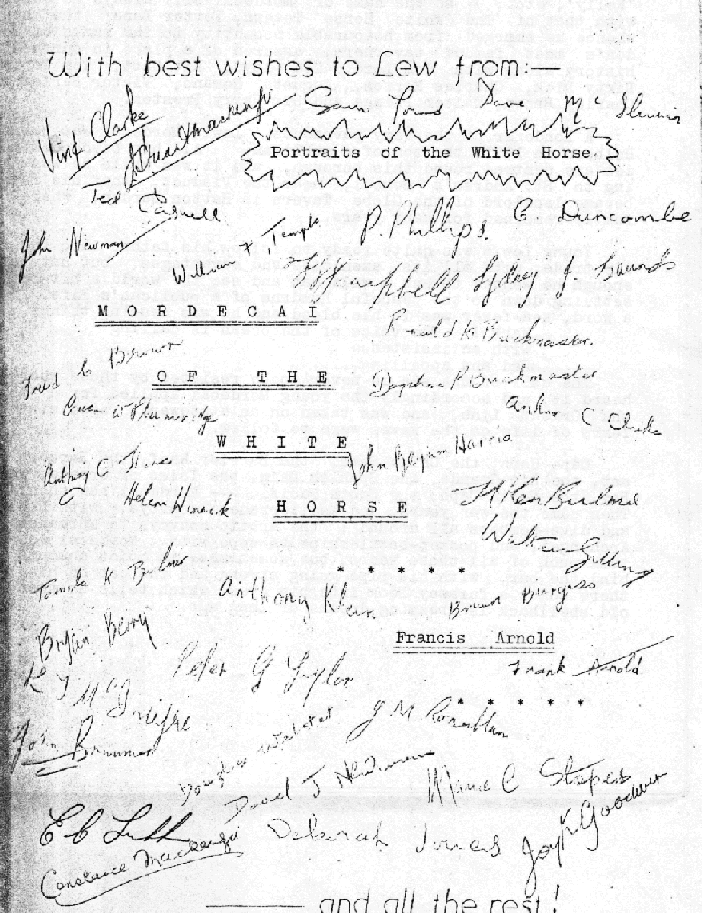 With best wishes to Lew from:—
Vinç Clarke
Sam Youd
Dave Mc
Portraits of the White Horse
Ted Carnell
John Newman
William F. Temple
P. Phillips.
C. Duncombe
Campbell
Sydney J. Bounds
M O R D E C A I
Ronald K Buckmaster.
Fred C Brown
O F  T H E
Daphne P Buckmaster
Arthur C Clarke
W H I T E
John Beynon Harris
Anthony C
Helen
H O R S E
H Ken Bulmer
Walter Gillings
* * * * *
Pamela K Bulmer
Anthony Klein
Brian Burgess
Bryan Berry
Francis Arnold
Frank Arnold
Peter G Taylor
* * * * *
John Brunner
J M Rosenblum
Douglas Webster
David J Newman
Marie C Stopes
E C Tubb
Deborah Jones
Joy K Goodwin
Constance Mackenzie
—— and all the rest!